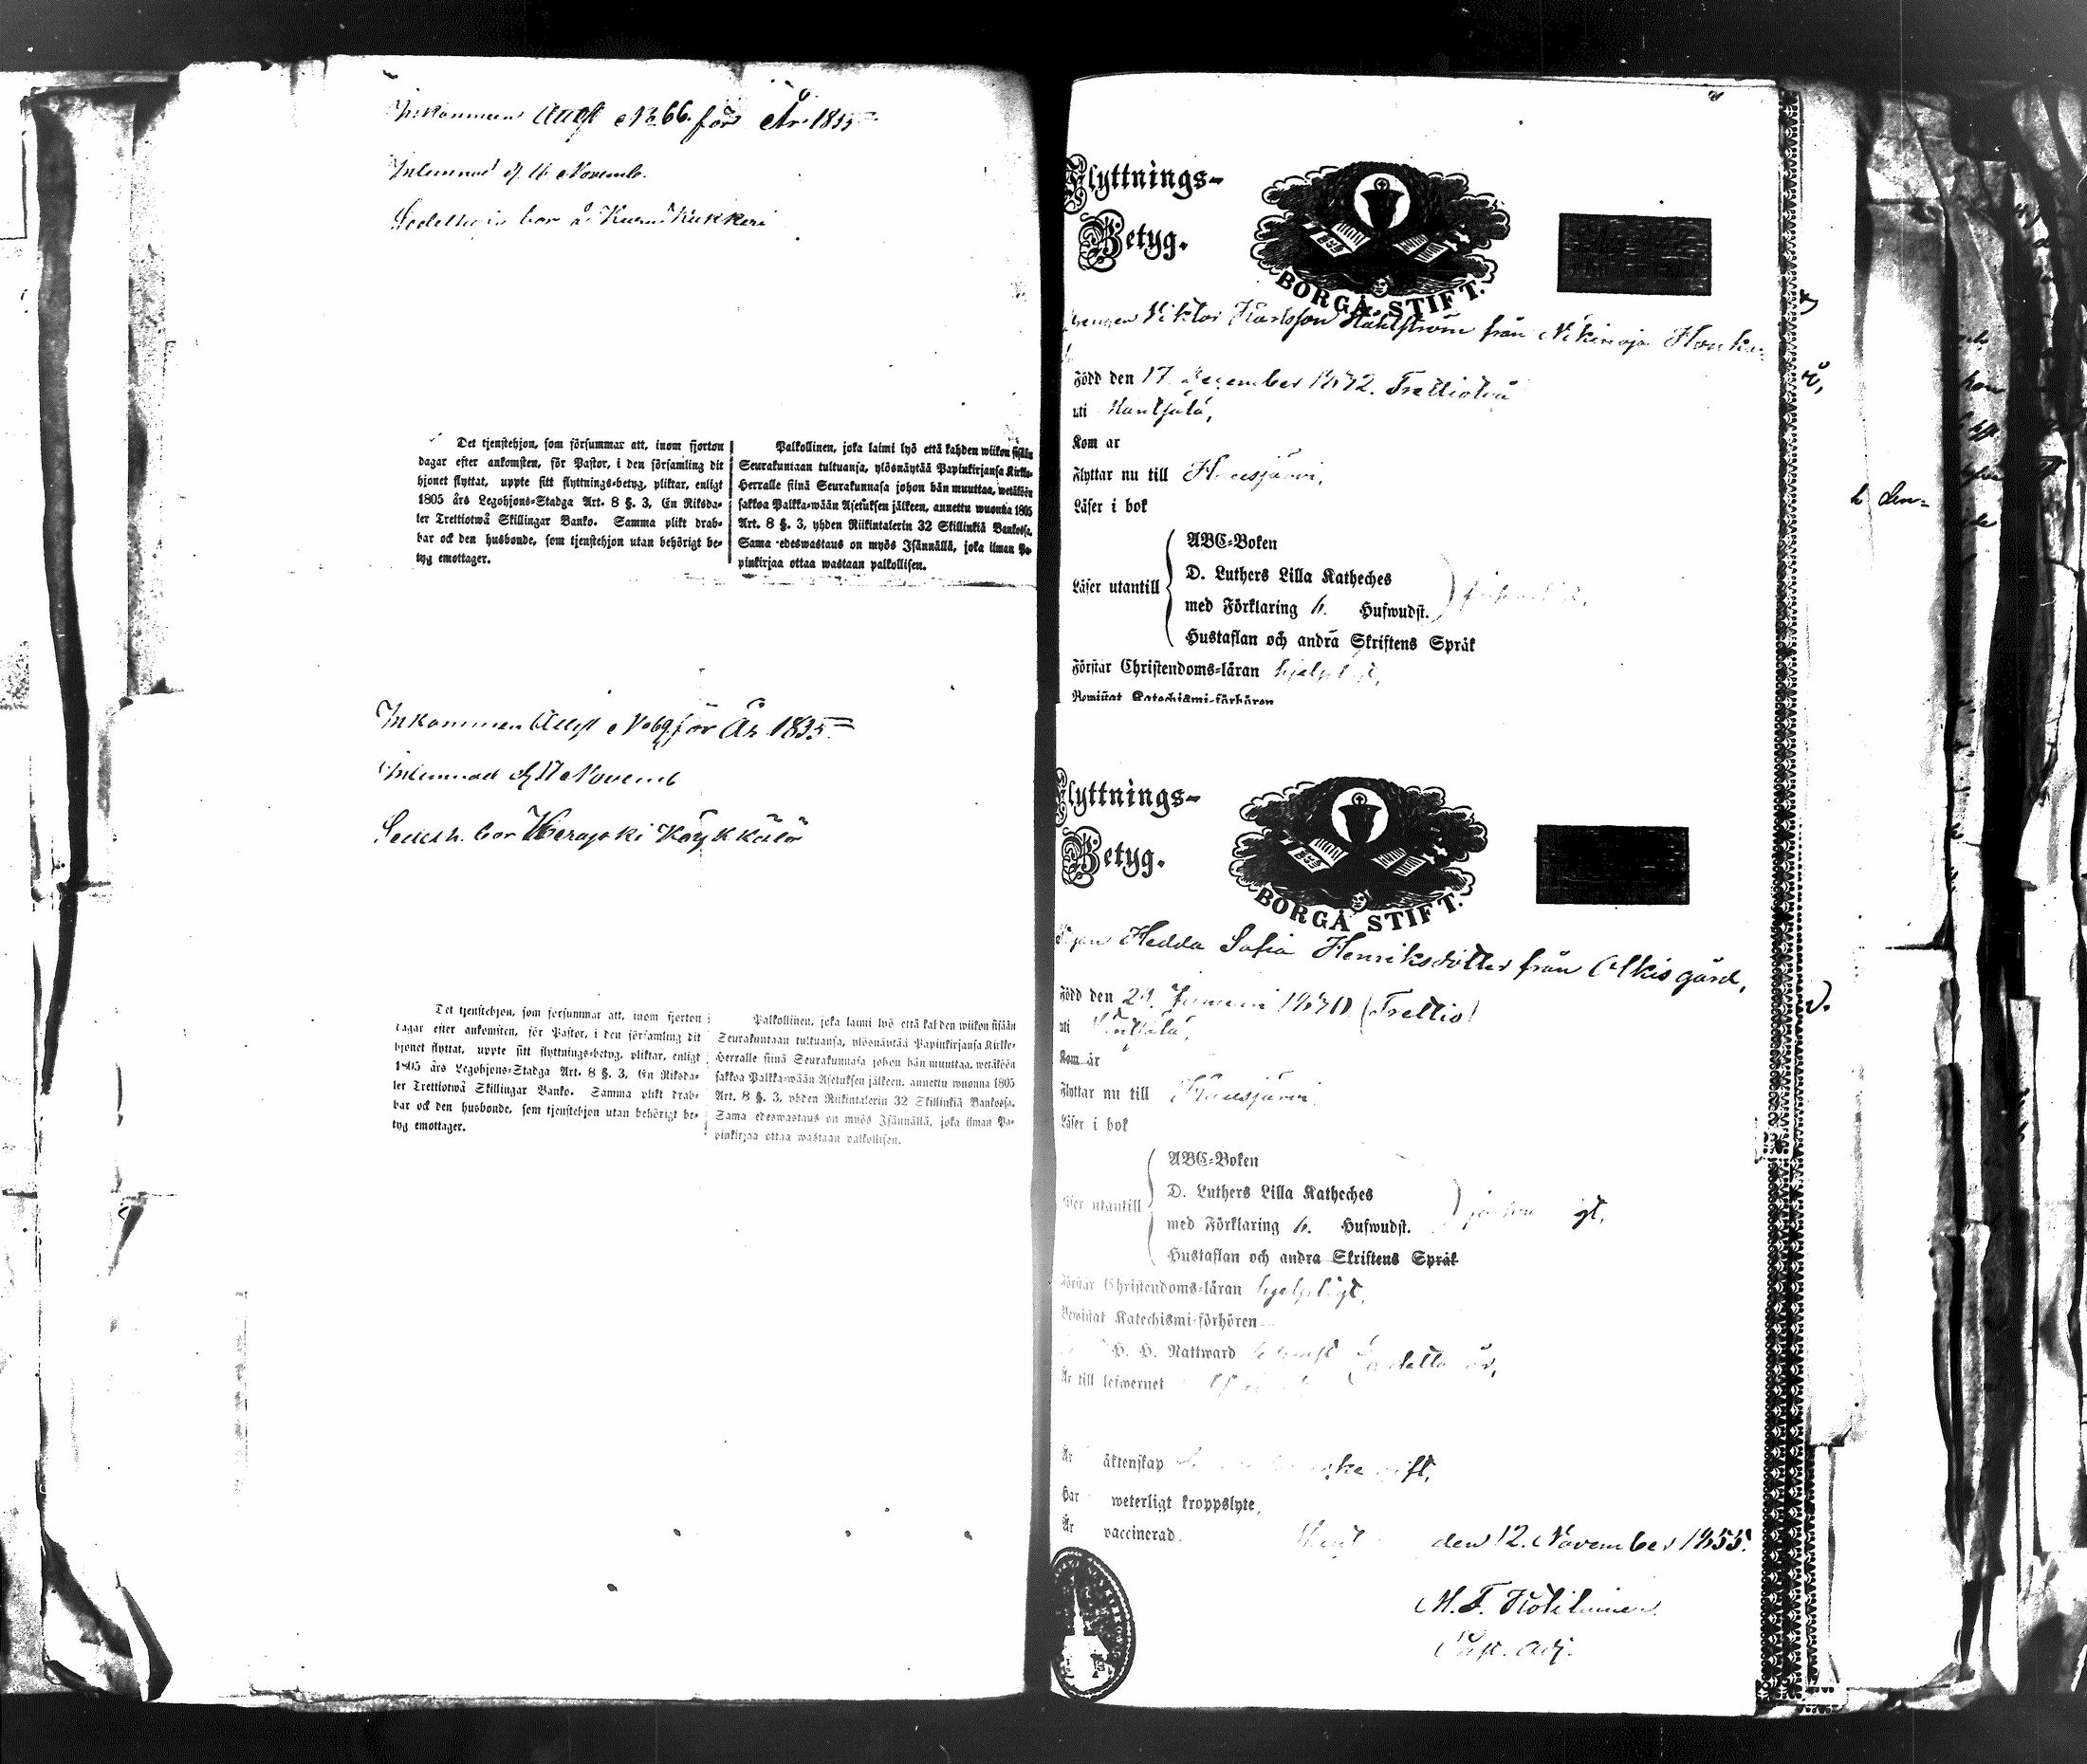 Inkommen Attest No 66. för År 1855
Inlemnad d. 16 Novemb.
bor å Kurmi Kukkeri
Det tjenstehjon, som försummar att, inom fjorton
dagar efter ankomsten, för Pastor, i den församling dit
hjonet flyttat, uppte sitt flyttnings-betyg, pliktar, enligt
1805 års Legohjons-Stadga Art. 8 §. 3, En Riksda-
ler Trettiotwå Skillingar Banko. Samma plikt drab-
bar ock den husbonde, som tjenstehjon utan behörigt be-
tyg emottager.
Palkollinen, joka laimi lyö että kahden wiikon sisään
Seurakuntaan tultuansa, ylösnäytää Papinkirjansa Kirkko-
Herralle siinä Seurakunnasa johon hän muuttaa, wetäköön
sakkoa Palkka-wään Asetuksen jälkeen, annettu wuonna 1805
Art. 8 §. 3, yhden Riikintalerin 32 Skillinkiä Bankossa.
Sama edeswastaus on myös Isännällä, joka ilman Pa-
pinkirjaa ottaa wastaan palkollisen.
Inkommen Attest No 69 för År 1855
Inlemnad d. 17 Novemb
bor Herajoki Köykkälä
Det tjenstehjon, som försummar att, inom fjorton
dagar efter ankomsten, för Pastor, i den församling dit
hjonet flyttat, uppte sitt flyttnings-betyg, pliktar, enligt
1805 års Legohjons-Stadga Art. 8 §. 3, En Riksda-
ler Trettiotwå Skillingar Banko. Samma plikt drab-
bar ock den husbonde, som tjenstehjon utan behörigt be-
tyg emottager.
Palkollinen, joka laimi lyö että kahden wiikon sisään
Seurakuntaan tultuansa, ylösnäytää Papinkirjansa Kirkko-
Herralle siinä Seurakunnasa johon hän muuttaa, wetäköön
sakkoa Palkka-wään Asetuksen jälkeen, annettu wuonna 1805
Art. 8 §. 3, yhden Riikintalerin 32 Skillinkiä Bankossa.
Sama edeswastaus on myös Isännällä, joka ilman Pa-
pinkirjaa ottaa wastaan palkollisen.
Flyttnings-
Betyg.
BORGÅ STIFT.
Drengen Viktor Karlsson Kahlström från Nikinoja Honka
Född den 17 December 1832. Trettiotvå
uti Mäntsälä,
Kom år
Flyttar nu till Hausjärvi,
Läser i bok
Läser utantill
ABC-Boken
D. Luthers Lilla Katheches
med Förklaring 6. Hufwudst.
Hustaflan och andra Skriftens Språk
Förstår Christendoms-läran hjelpligt,
Bewistat Katechismi-förhören
Flyttnings-
Betyg.
BORGÅ STIFT.
Pigan Hedda Sofia Henriksdotter från Alkis gård,
Född den 29. Januari 1830 (Trettio)
uti Mäntsälä,
Kom år
Flyttar nu till Hausjärvi.
Läser i bok
Läser utantill
ABC-Boken
D. Luthers Lilla Katheches
med Förklaring 6. Hufwudst.
Hustaflan och andra Skriftens Språk
Förstår Christendoms-läran hjelpligt,
Bewistat Katechismi-förhören
H. H. Nattward detta år,
Är till lefwernet
Är äktenskap gift,
Har weterligt kroppslyte,
Är vaccinerad.
den 12. November 1855.
M. F. Kotilainen
Past. adj.